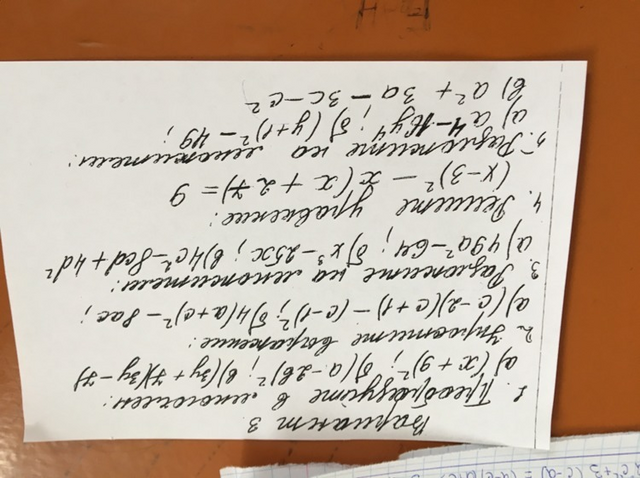 Вариант 3
1. Преобразуйте в многочлен:
а) (x + 9)²; б) (а - 2в)²; в) (3y + 7)(3y - 7)
2. Упростите выражение:
а) (с - 2)(с + 1) - (с - 1)²; б) 4(а + с)² - 8ас;
3. Разложите на множители:
а) 49а² - 64; б) x³ - 25x; в) 4с² - 8cd + 4d²
4. Решите уравнение:
(x - 3)² - x(x + 27) = 9
5. Разложите на множители:
а) а⁴ - 16y⁴; б) (y + 1)² - 49;
в) а² + 3а - 3с - с²